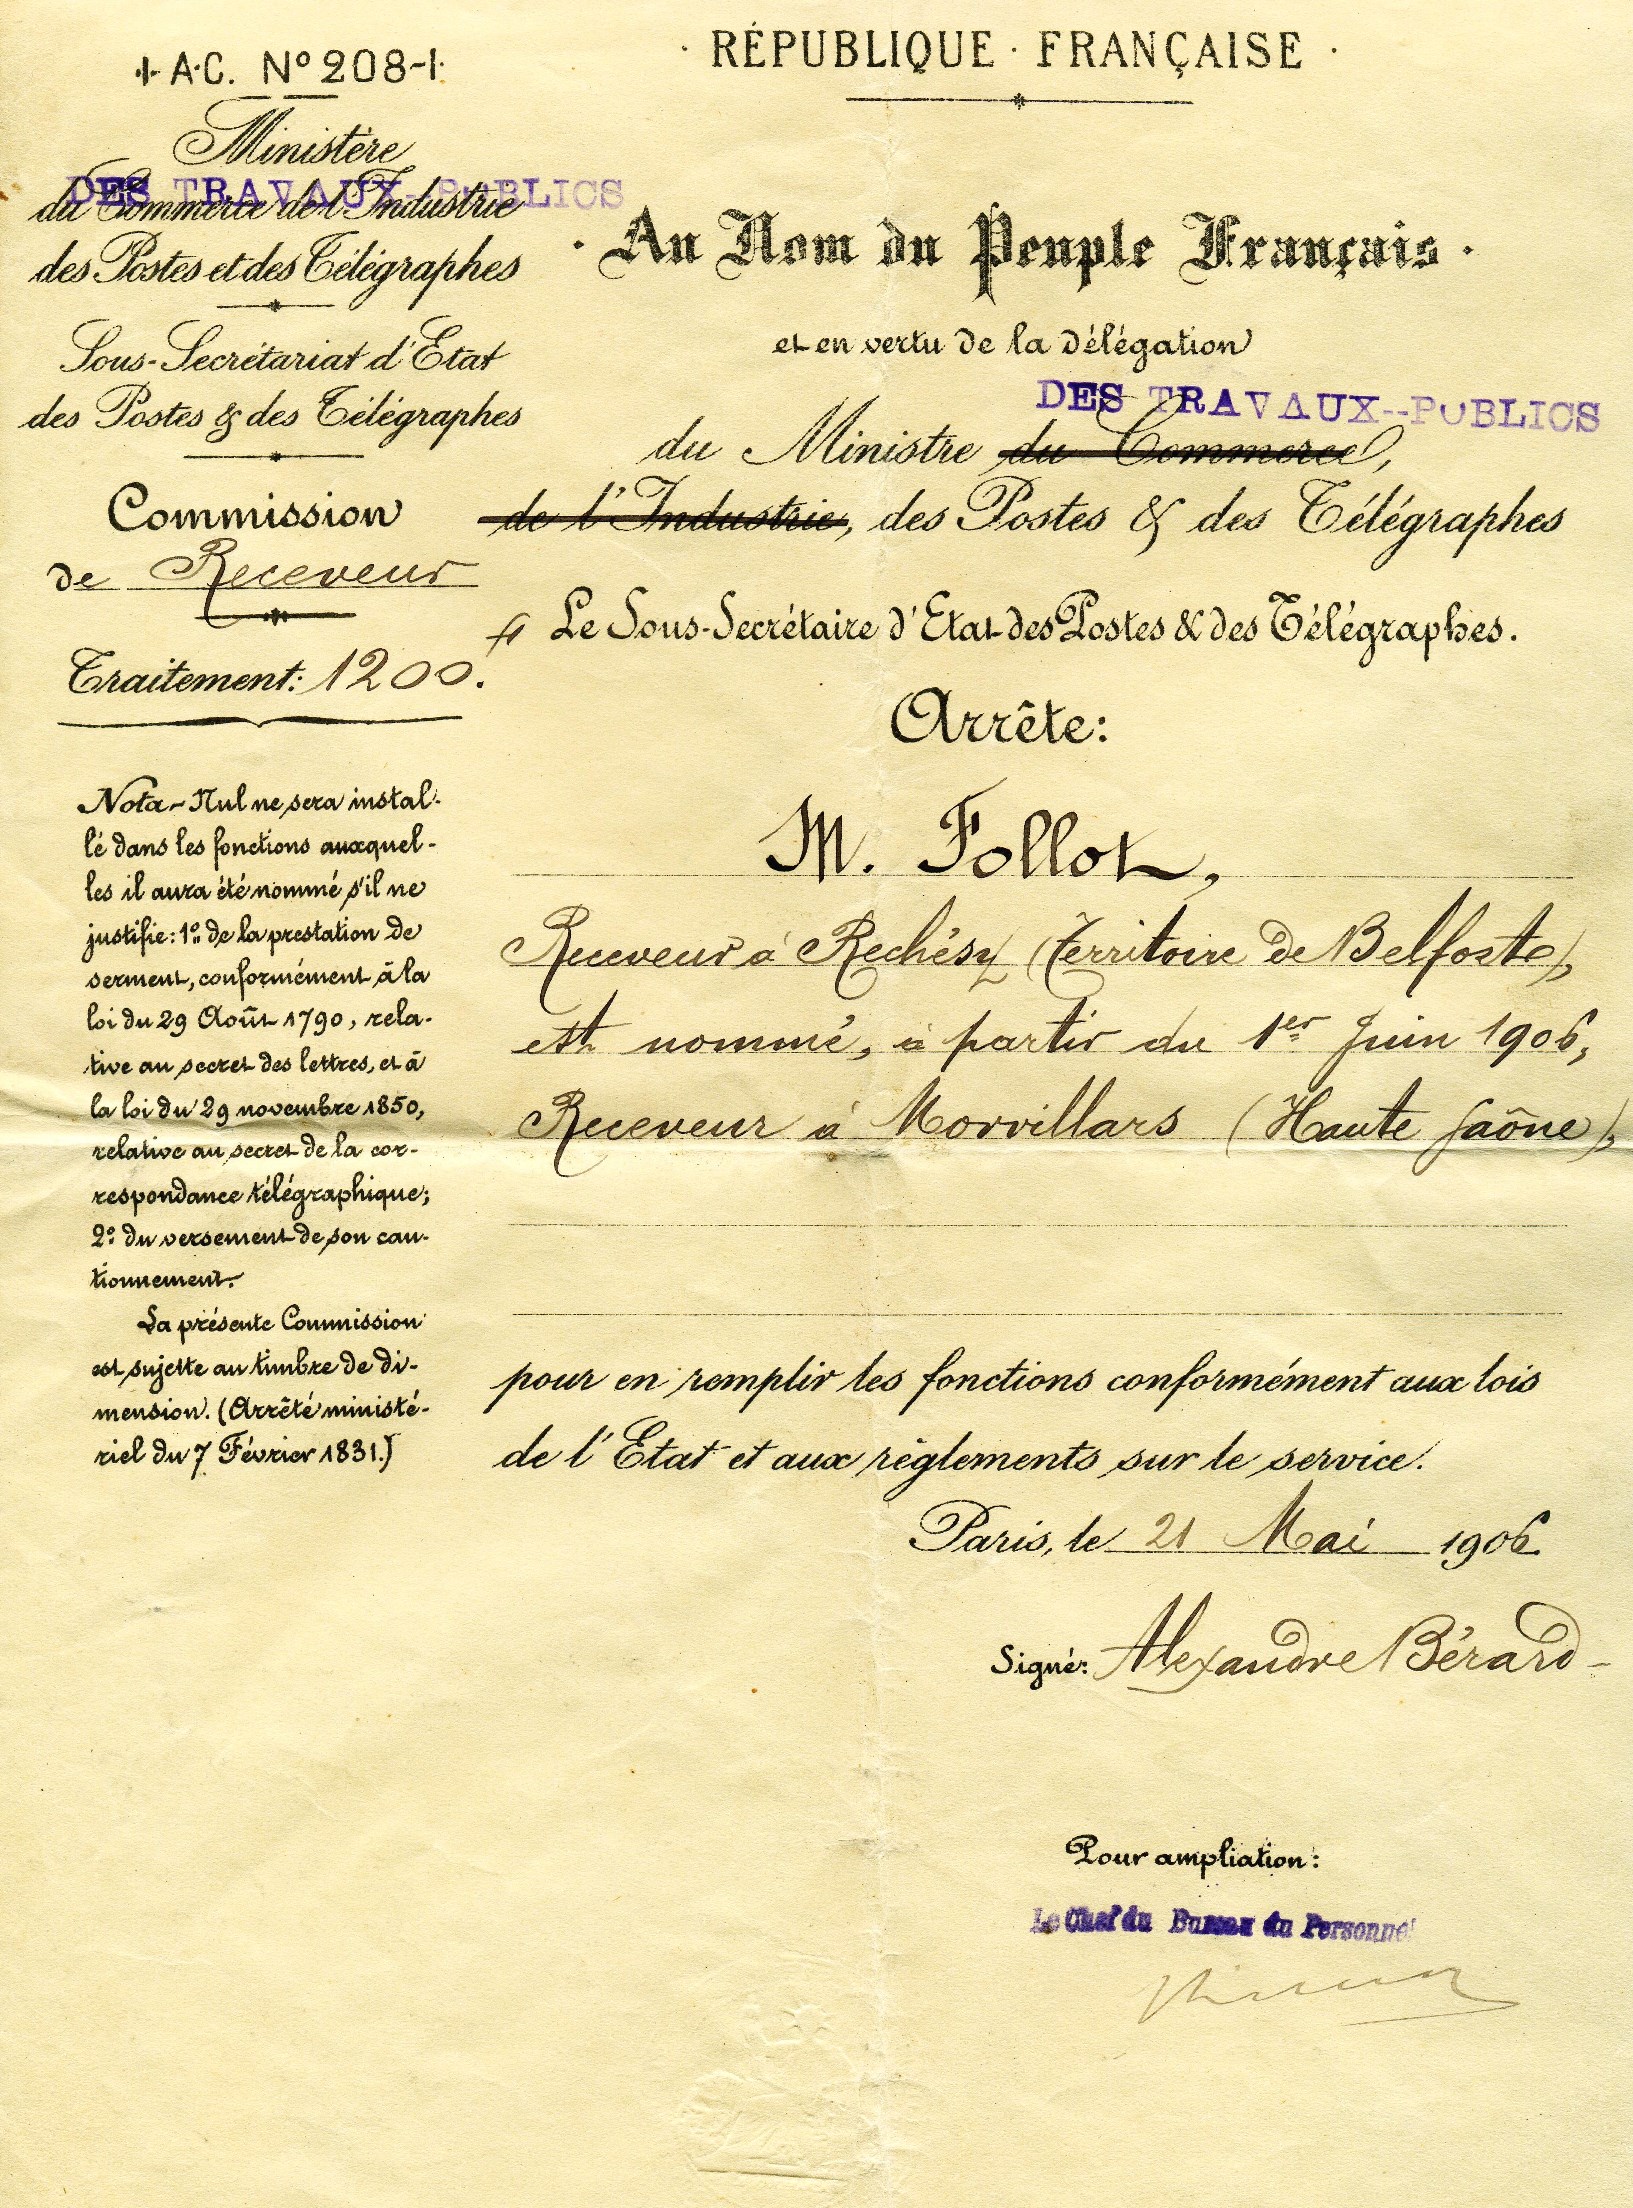 ·I· A·C. Nº 208-I·
Ministère
DES TRAVAUX--PUBLICS
du Commerce de l'Industrie
des Postes et des Télégraphes
Sous-Secrétariat d'Etat
des Postes & des Télégraphes
Commission
de Receveur
Traitement: 1200.
Nota - Nul ne sera instal-
lé dans les fonctions auxquel-
les il aura été nommé s'il ne
justifie: 1º de la prestation de
serment, conformément à la
loi du 29 Août 1790, rela-
tive au secret des lettres, et à
la loi du 29 novembre 1850,
relative au secret de la cor-
respondance télégraphique;
2º du versement de son cau-
tionnement.
La présente Commission
est sujette au timbre de di-
mension. (Arrêté ministé-
riel du 7 Février 1831.)
· RÉPUBLIQUE · FRANÇAISE ·
· Au Nom du Peuple Français ·
et en vertu de la délégation
DES TRAVAUX--PUBLICS
du Ministre du Commerce,
de l'Industrie, des Postes & des Télégraphes
Le Sous-Secrétaire d'Etat des Postes & des Télégraphes.
Arrête:
M. Follot,
Receveur à Rechésy (Territoire de Belfort),
est nommé, à partir du 1er Juin 1906,
Receveur à Morvillars (Haute Saône),
pour en remplir les fonctions conformément aux lois
de l'Etat et aux règlements sur le service.
Paris, le 21 Mai 1906
Signé: Alexandre Bérard
Pour ampliation:
Le Chef du Bureau du Personnel